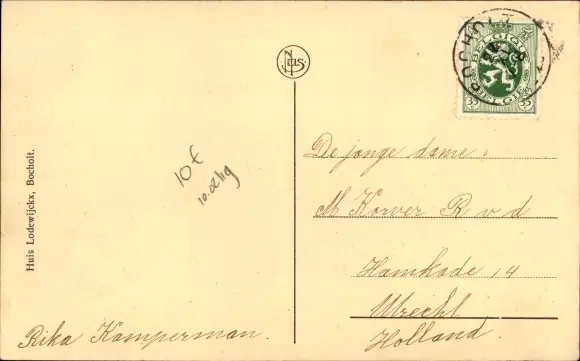 Huis Lodewijckx, Bocholt.
NELS
BOCHOLT
BELGIQUE
BELGIË
35 35
10€
De jonge dame:
M Korver R v d
Hamkade 14
Utrecht
Holland.
Rika Kamperman.